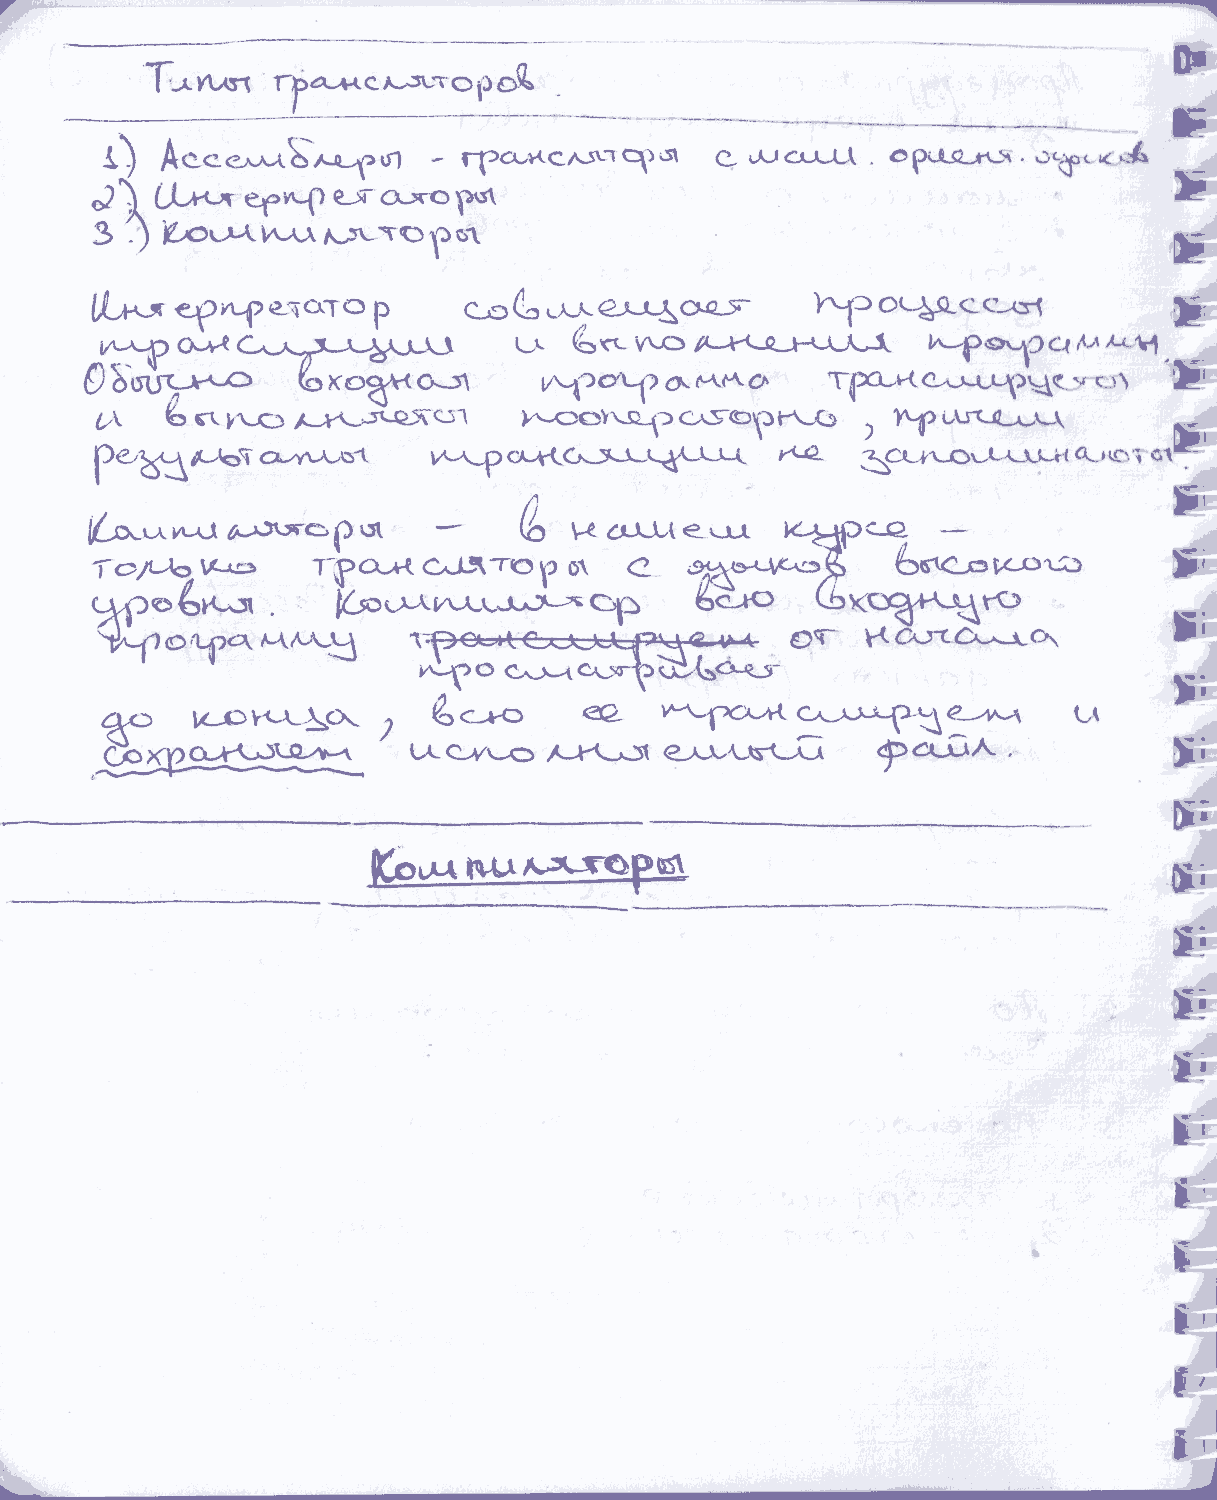 Типы трансляторов.
1.) Ассемблеры - трансляторы с маш. ориент. языков
2.) Интерпретаторы
3.) Компиляторы
Интерпретатор совмещает процессы
трансляции и выполнения программы.
Обычно входная программа транслируется
и выполняется пооператорно, причем
результаты трансляции не запоминаются.
Компиляторы – в нашем курсе –
только трансляторы с языков высокого
уровня. Компилятор всю входную
программу транслирует от начала
просматривает
до конца, всю ее транслирует и
сохраняет исполняемый файл.
Компиляторы